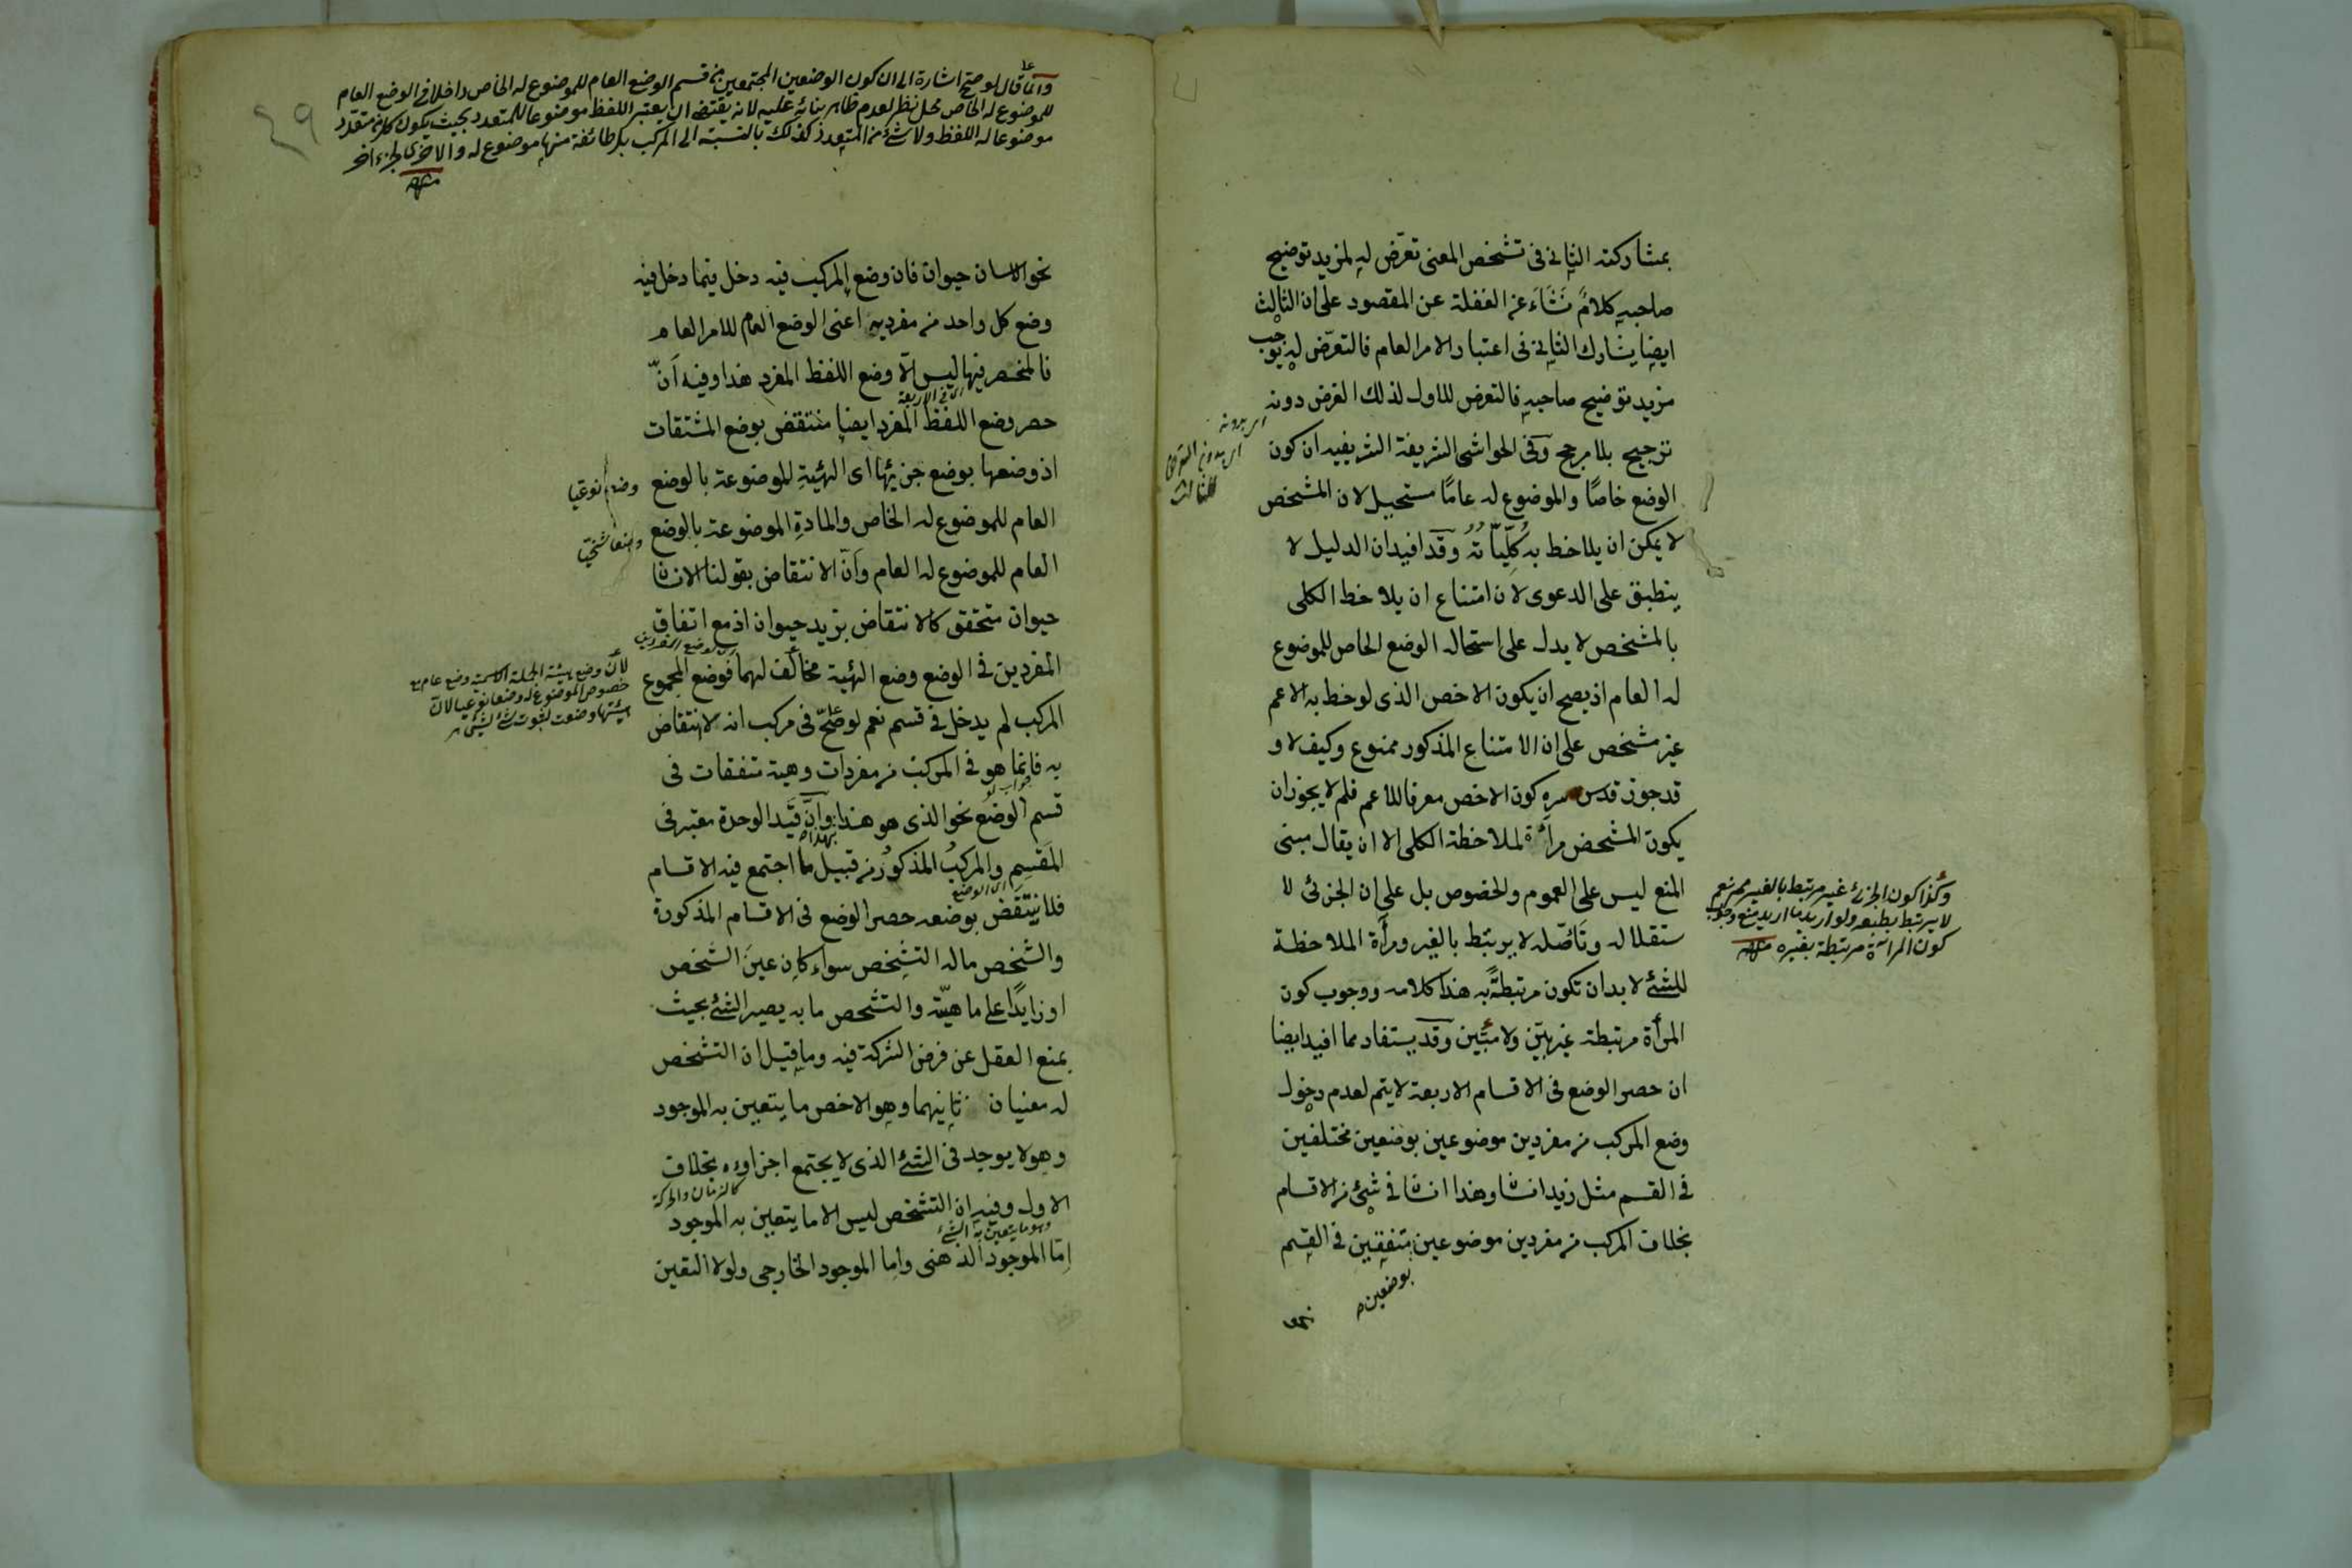 بمشاركته الثاني في تشخص المعنى تعرّض له لمزيد توضيح
صاحبه كلامٌ نَشَاَء عن الغفلة عن المقصود على ان الثالث
ايضا يشارك الثاني في اعتبار الامر العام فالتعرّض له يوجب
مزيد توضيح صاحبه فالتعرض للاول لذلك الغرض دونه
ترجيح بلا مرجح وفى الحواشى الشريفة الشريفيه ان كون
الوضع خاصًا والموضوع له عامًا مستحيل لان المشخص
لا يمكن ان يلاحظ به كُلِّيّاتُهُ وقد افيد ان الدليل لا
ينطبق على الدعوى لان امتناع ان يلاحظ الكلى
بالمشخص لا يدل على استحاله الوضع الخاص للموضوع
له العام اذ يصح ان يكون الاخص الذى لوحظ به الاعم
غير مشخص على ان الامتناع المذكور ممنوع وكيف لا و
قد جوز قدس سره كون الاخص معرفا للاعم فلم لا يجوز ان
يكون المشخص مرأة لملاحظة الكلى الا ان يقال مبنى
المنع ليس على العموم والخصوص بل على ان الجزئى لا
ستقلاله وتَأَصّله لا يرتبط بالغير ومرأة الملاحظة
للشئ لا بد ان تكون مرتبطةً به هذا كلامه ووجوب كون
المرأة مرتبطة غير بيّن ولا مبيّن وقد يستفاد مما افيد ايضا
ان حصر الوضع فى الاقسام الاربعة لا يتم لعدم دخول
وضع المركب من مفردين موضوعين بوضعين مختلفين
في القسم مثل زيد انسان وهذا انسان في شئ من الاقسام
بخلاف المركب من مفردين موضوعين متفقين في القسم
بوضعين
نحو
اى بدون التعرض
للثالث
وكذا كون الجزئ غير مرتبط بالغير
لا يرتبط بطبعه ولو اريد ما اريد منع وجوب
كون المرآة مرتبطة بغيره منه
٤٩
وانما قال لو صح اشارة الى ان كون الوضعين المجتمعين من قسم الوضع العام للموضوع له الخاص داخلا في الوضع العام
للموضوع له الخاص محل نظر لعدم ظاهر بنائه عليه لانه يقتضى ان يعتبر اللفظ موضوعا للمتعدد بحيث يكون كل من متعدد
موضوعا له اللفظ ولا شئ من المتعدد كذلك بالنسبة الى المركب بل طائفة منها موضوع له والاخرى لجزء اخر
منه
نحو الانسان حيوان فان وضع المركب فيه دخل فيما دخل فيه
وضع كل واحد من مفرديه اعنى الوضع العام للامر العام
فالمنحصر فيها ليس الّا وضع اللفظ المفرد هذا وفيه اَنّ
اى في الاربعة
حصر وضع اللفظ المفرد ايضا منتقض بوضع المشتقات
اذ وضعها بوضع جزئيها اى الهيئة الموضوعة بالوضع
وضعا نوعيا
العام للموضوع له الخاص والمادة الموضوعة بالوضع
وضعا شخصيّا
العام للموضوع له العام وأنّ الانتقاض بقولنا الانسان
حيوان متحقق كالانتقاض بزيد حيوان اذ مع اتفاق
المفردين فى الوضع وضع الهيئة مخالف لهما فوضع المجموع
لأن وضع هيئة الجملة الاسمية وضع عام مع
خصوص الموضوع له وضعا نوعيا لان
هيئتها وضعت لثبوت شئ لشئ
المركب لم يدخل في قسم نعم لو صحّ في مركب انه لا انتقاض
به فانما هو في المركب من مفردات وهيئة متفقات فى
جواب لو
قسم الوضع نحو الذى هو هذا وأنّ قَيَد الوحدة معتبر فى
المَقسِمِ والمركبُ المذكورُ من قبيل ما اجتمع فيه الاقسام
اى الوضع
فلا ينتقض بوضعه حصر الوضع فى الاقسام المذكورة
والشخص ماله التشخص سواء كان عينَ الشخص
او زايدًا على ماهيّته والتشخص ما به يصير الشئ بحيث
يمنع العقل عن فرض الشركة فيه وما قيل ان التشخص
له معنيان ثانيهما وهو الاخص ما يتعين به الموجود
وهو لا يوجد فى الشئ الذى لا يجتمع اجزاوءه بخلاف
كالزمان والحركة
الاول وفيه ان التشخص ليس الا ما يتعين به الموجود
وهو ما يتعين به الشئ
اِمّا الموجود الذهنى واِما الموجود الخارجى ولولا التعين